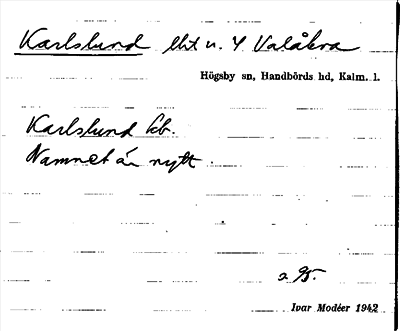 Karlslund lht u. Y Valåkra
Högsby sn, Handbörds hd, Kalm. l.
Karlslund lb.
Namnet är nytt.
s. 95.
Ivar Modéer 1942